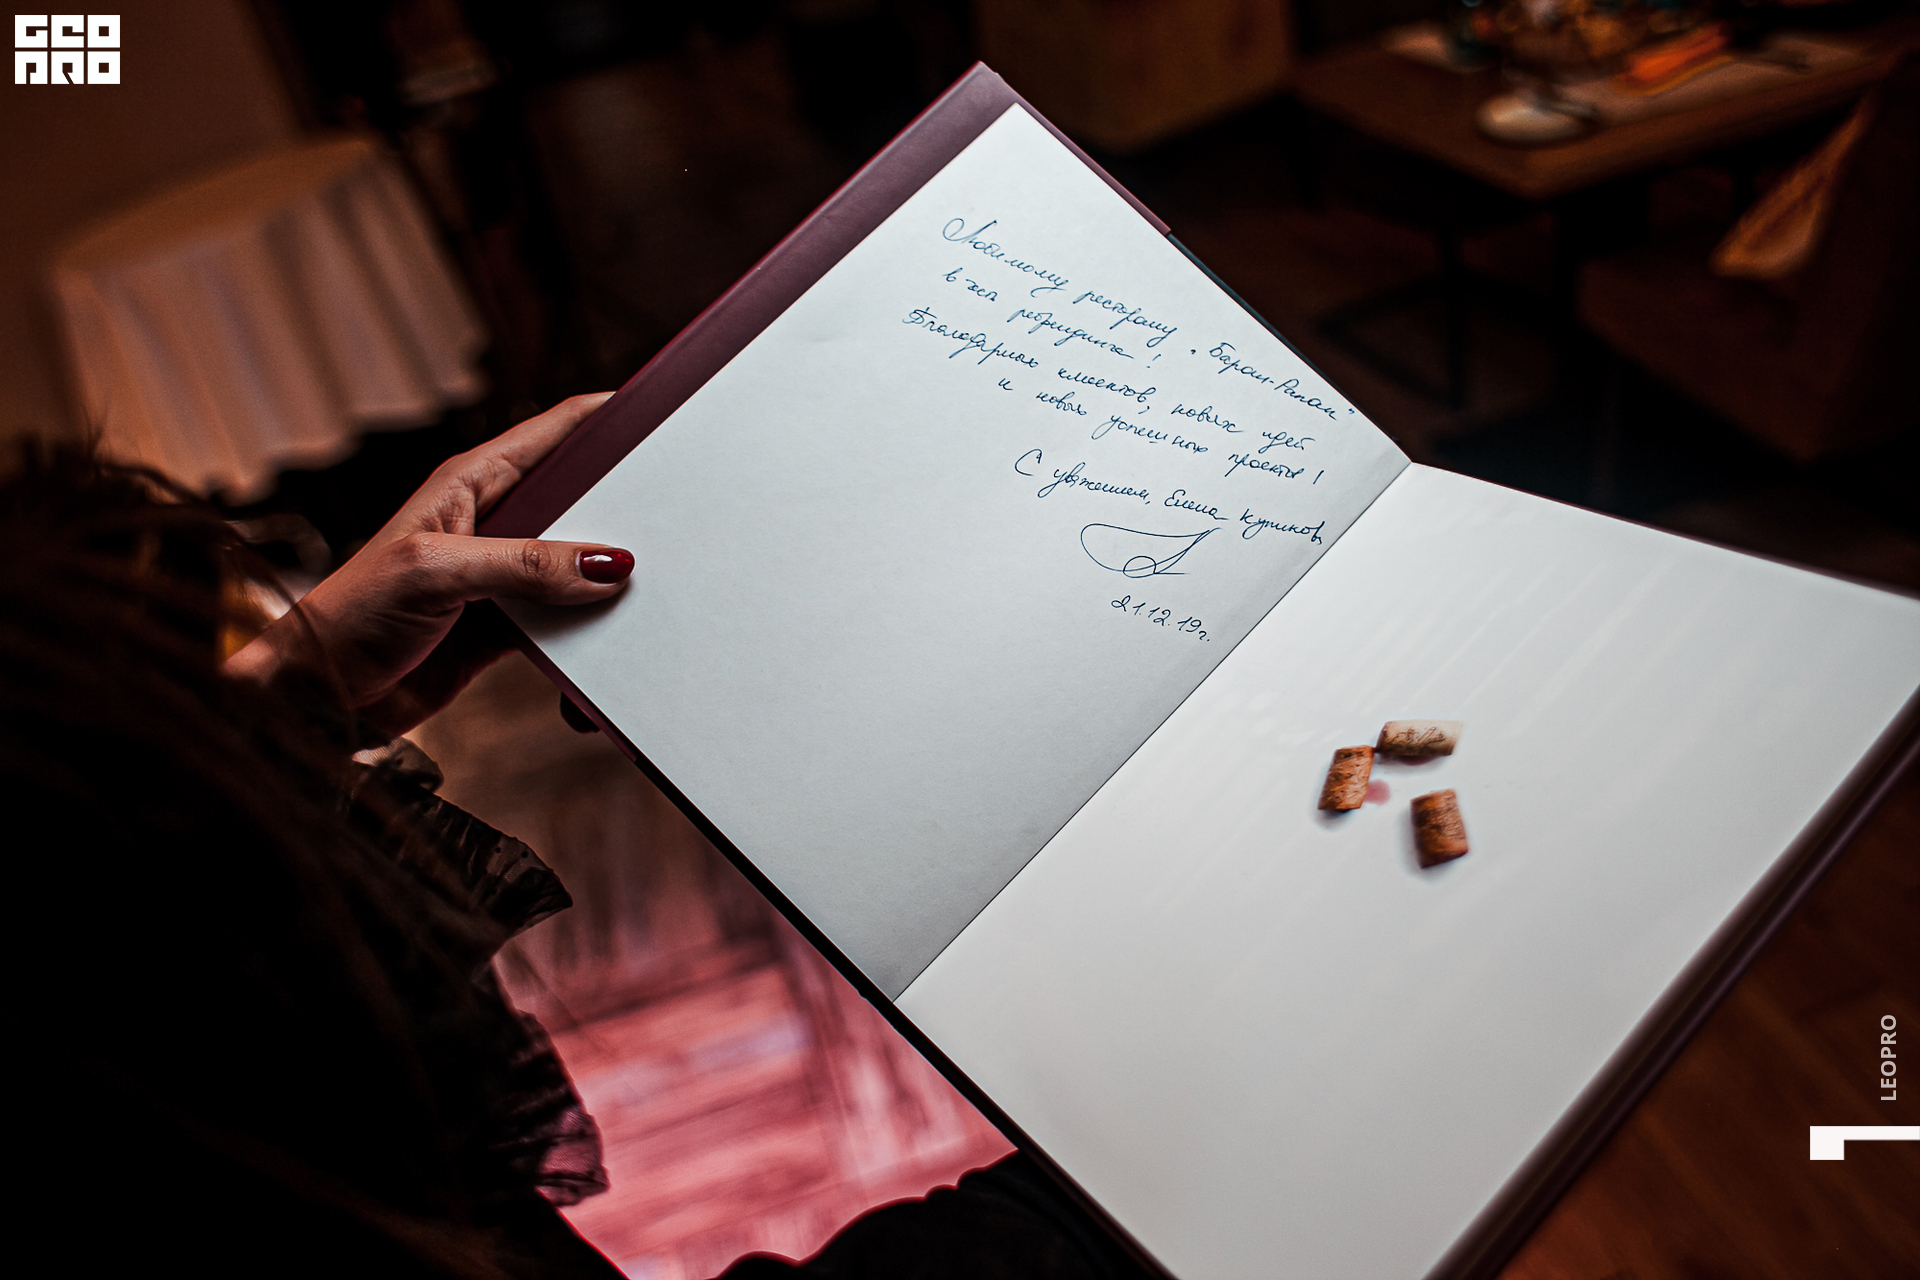 GEO
PRO
Любимому ресторану "Баран-Рапан"
в честь ребрендинга!
Благодарных клиентов, новых идей
и новых успешных проектов!
С уважением, Елена Куликова
21.12.19г.
LEOPRO